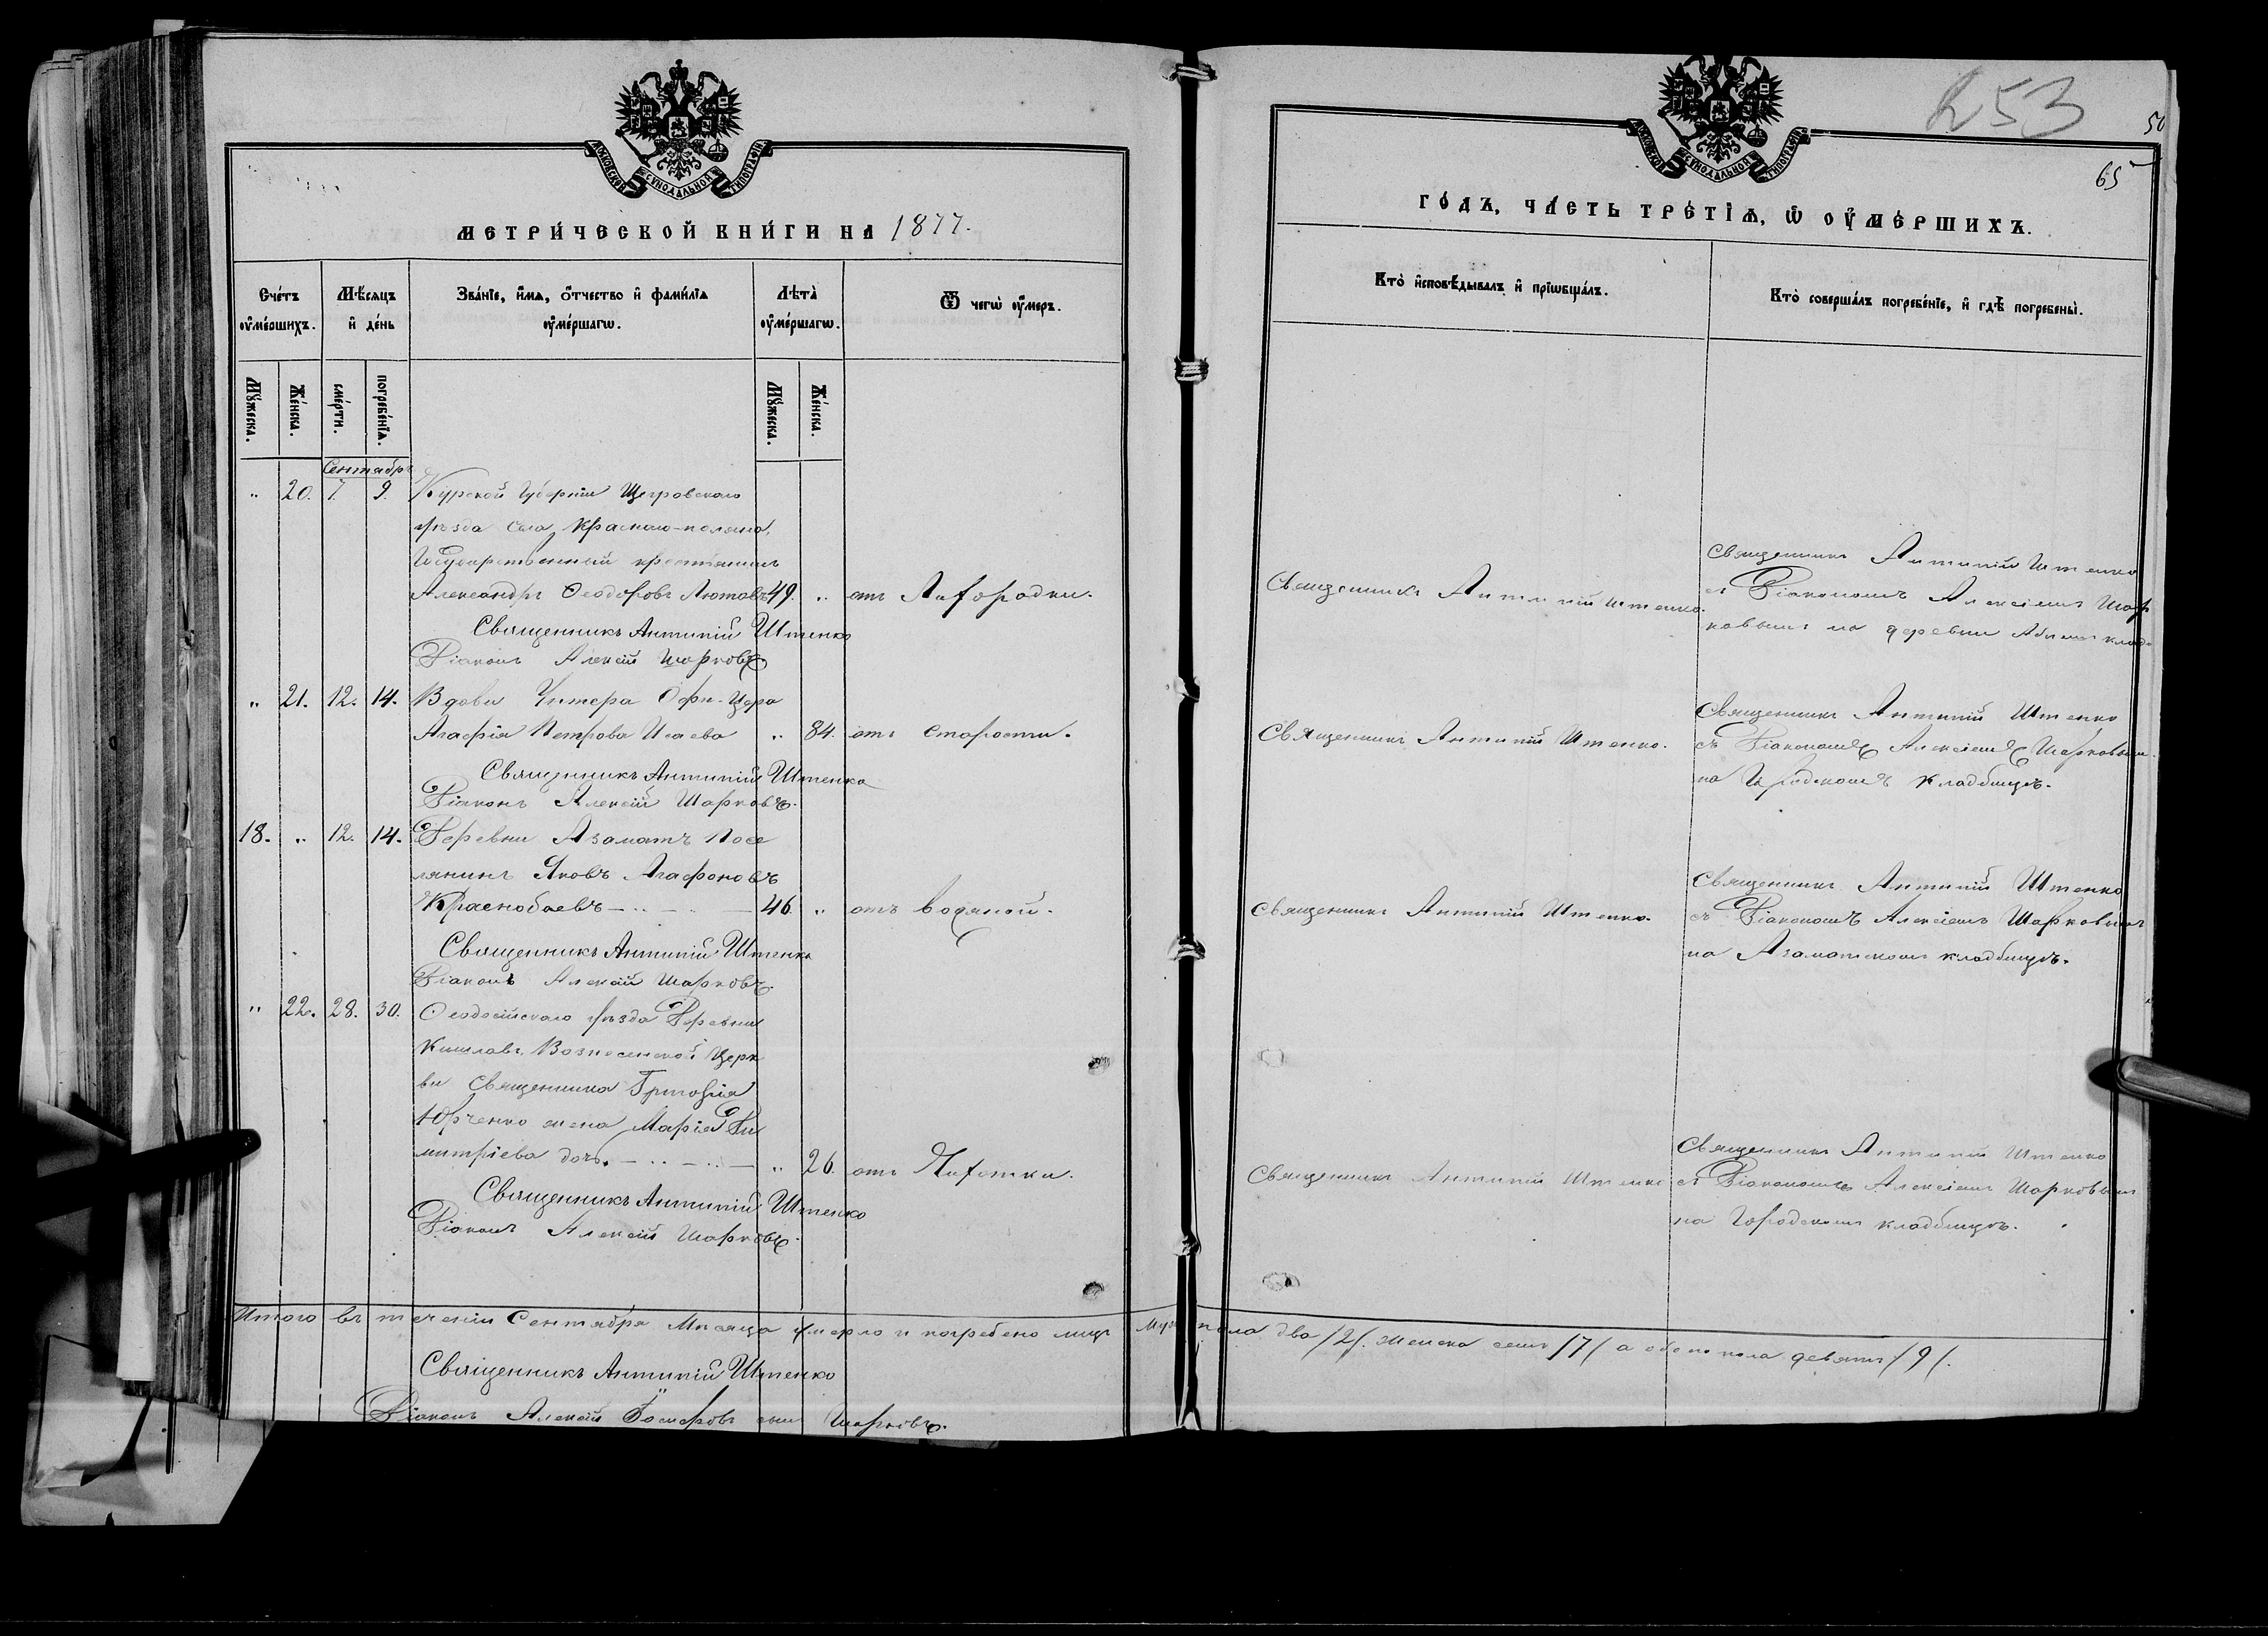 МОСКОВСКОЙ СѴНОДАЛЬНОЙ ТИПОГРАФІИ
МЕТРИ́ЧЕСКОЙ КНИ́ГИ НА 1877.
Сче́тъ ᲂу҆ме́ршихъ.
Мѣ́сяцъ и҆ де́нь
Зва́нїе, и҆́мѧ, ѻ҆́тчество и҆ фами́лїѧ ᲂу҆ме́ршагѡ.
Лѣта̀ ᲂу҆ме́ршагѡ.
Ѿ чегѡ̀ ᲂу҆́меръ.
Мꙋ́жеска.
Же́нска.
сме́рти.
погребе́нїѧ.
Мꙋ́жеска.
Же́нска.
Сентябрь
„ 20. 7. 9. Курской Губерніи Щегровского
уѣзда села Красного-поляна,
Государственный крестьянинъ
Александръ Ѳеодоровъ Лютовъ 49. „ отъ Лихорадки.
Священникъ Антипій Штенко
Діаконъ Алексій Шарковъ.
„ 21. 12. 14. Вдова Унтера Офи-Цера
Агафія Петрова Исаева „ 84. отъ Старости.
Священникъ Антипій Штенко
Діаконъ Алексій Шарковъ.
18. „ 12. 14. Деревни Азаматъ Посе
лянинъ Яковъ Агафоновъ
Краснобаевъ 46. „ отъ водяной.
Священникъ Антипій Штенко
Діаконъ Алексій Шарковъ.
„ 22. 28. 30. Ѳеодосійскаго уѣзда Деревни
Кишлавъ, Вознесенской Церк
ви Священника Григорія
Юрченко жена Марія Ди
митріева дочь. „ 26. отъ Чахотки.
Священникъ Антипій Штенко
Діаконъ Алексій Шарковъ.
Итого въ теченіи Сентября Мѣсяца умерло и погребено лицъ муж. пола два /2/. женска семь /7/ а обоего пола девять /9/.
Священникъ Антипій Штенко
Діаконъ Алексій сынъ Шарковъ.
253
50
65
МОСКОВСКОЙ СѴНОДАЛЬНОЙ ТИПОГРАФІИ
ГО́ДЪ, ЧА́СТЬ ТРЕ́ТЇѦ, Ѡ҆ ОУ҆МЕ́РШИХЪ.
Кто̀ и҆сповѣ́дывалъ и҆ прїѡбща́лъ.
Кто̀ соверша́лъ погребе́нїе, и҆ гдѣ̀ погребены̀.
Священникъ Антипій Штенко.
Священникъ Антипій Штенко
съ Діакономъ Алексіемъ Шар
ковымъ на деревни клад.
Священникъ Антипій Штенко.
Священникъ Антипій Штенко
съ Діакономъ Алексіемъ Шарковым
на Городскомъ Кладбищѣ.
Священникъ Антипій Штенко.
Священникъ Антипій Штенко
съ Діакономъ Алексіемъ Шарковымъ
на Азаматскомъ кладбищѣ.
Священникъ Антипій Штенко
Священникъ Антипій Штенко
съ Діакономъ Алексіемъ Шарковым
на Городскомъ кладбищѣ.